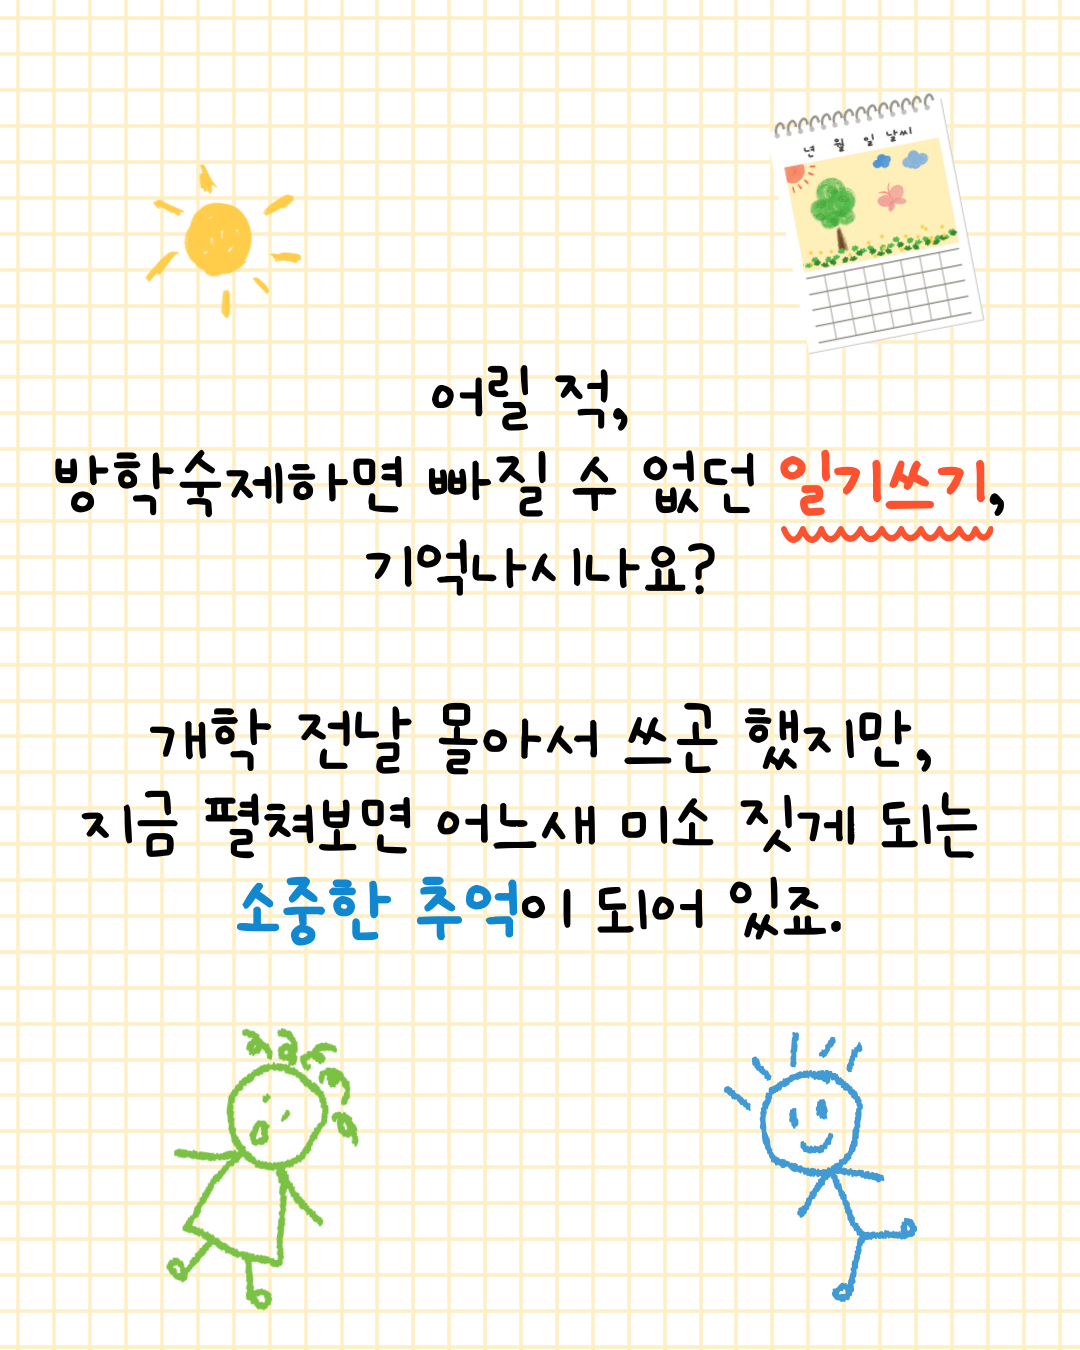 년 월 일 날씨
어릴 적,
방학숙제하면 빠질 수 없던 일기쓰기,
기억나시나요?
개학 전날 몰아서 쓰곤 했지만,
지금 펼쳐보면 어느새 미소 짓게 되는
소중한 추억이 되어 있죠.